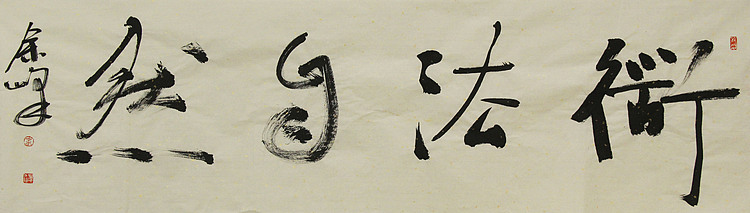 衜法自然
余峰